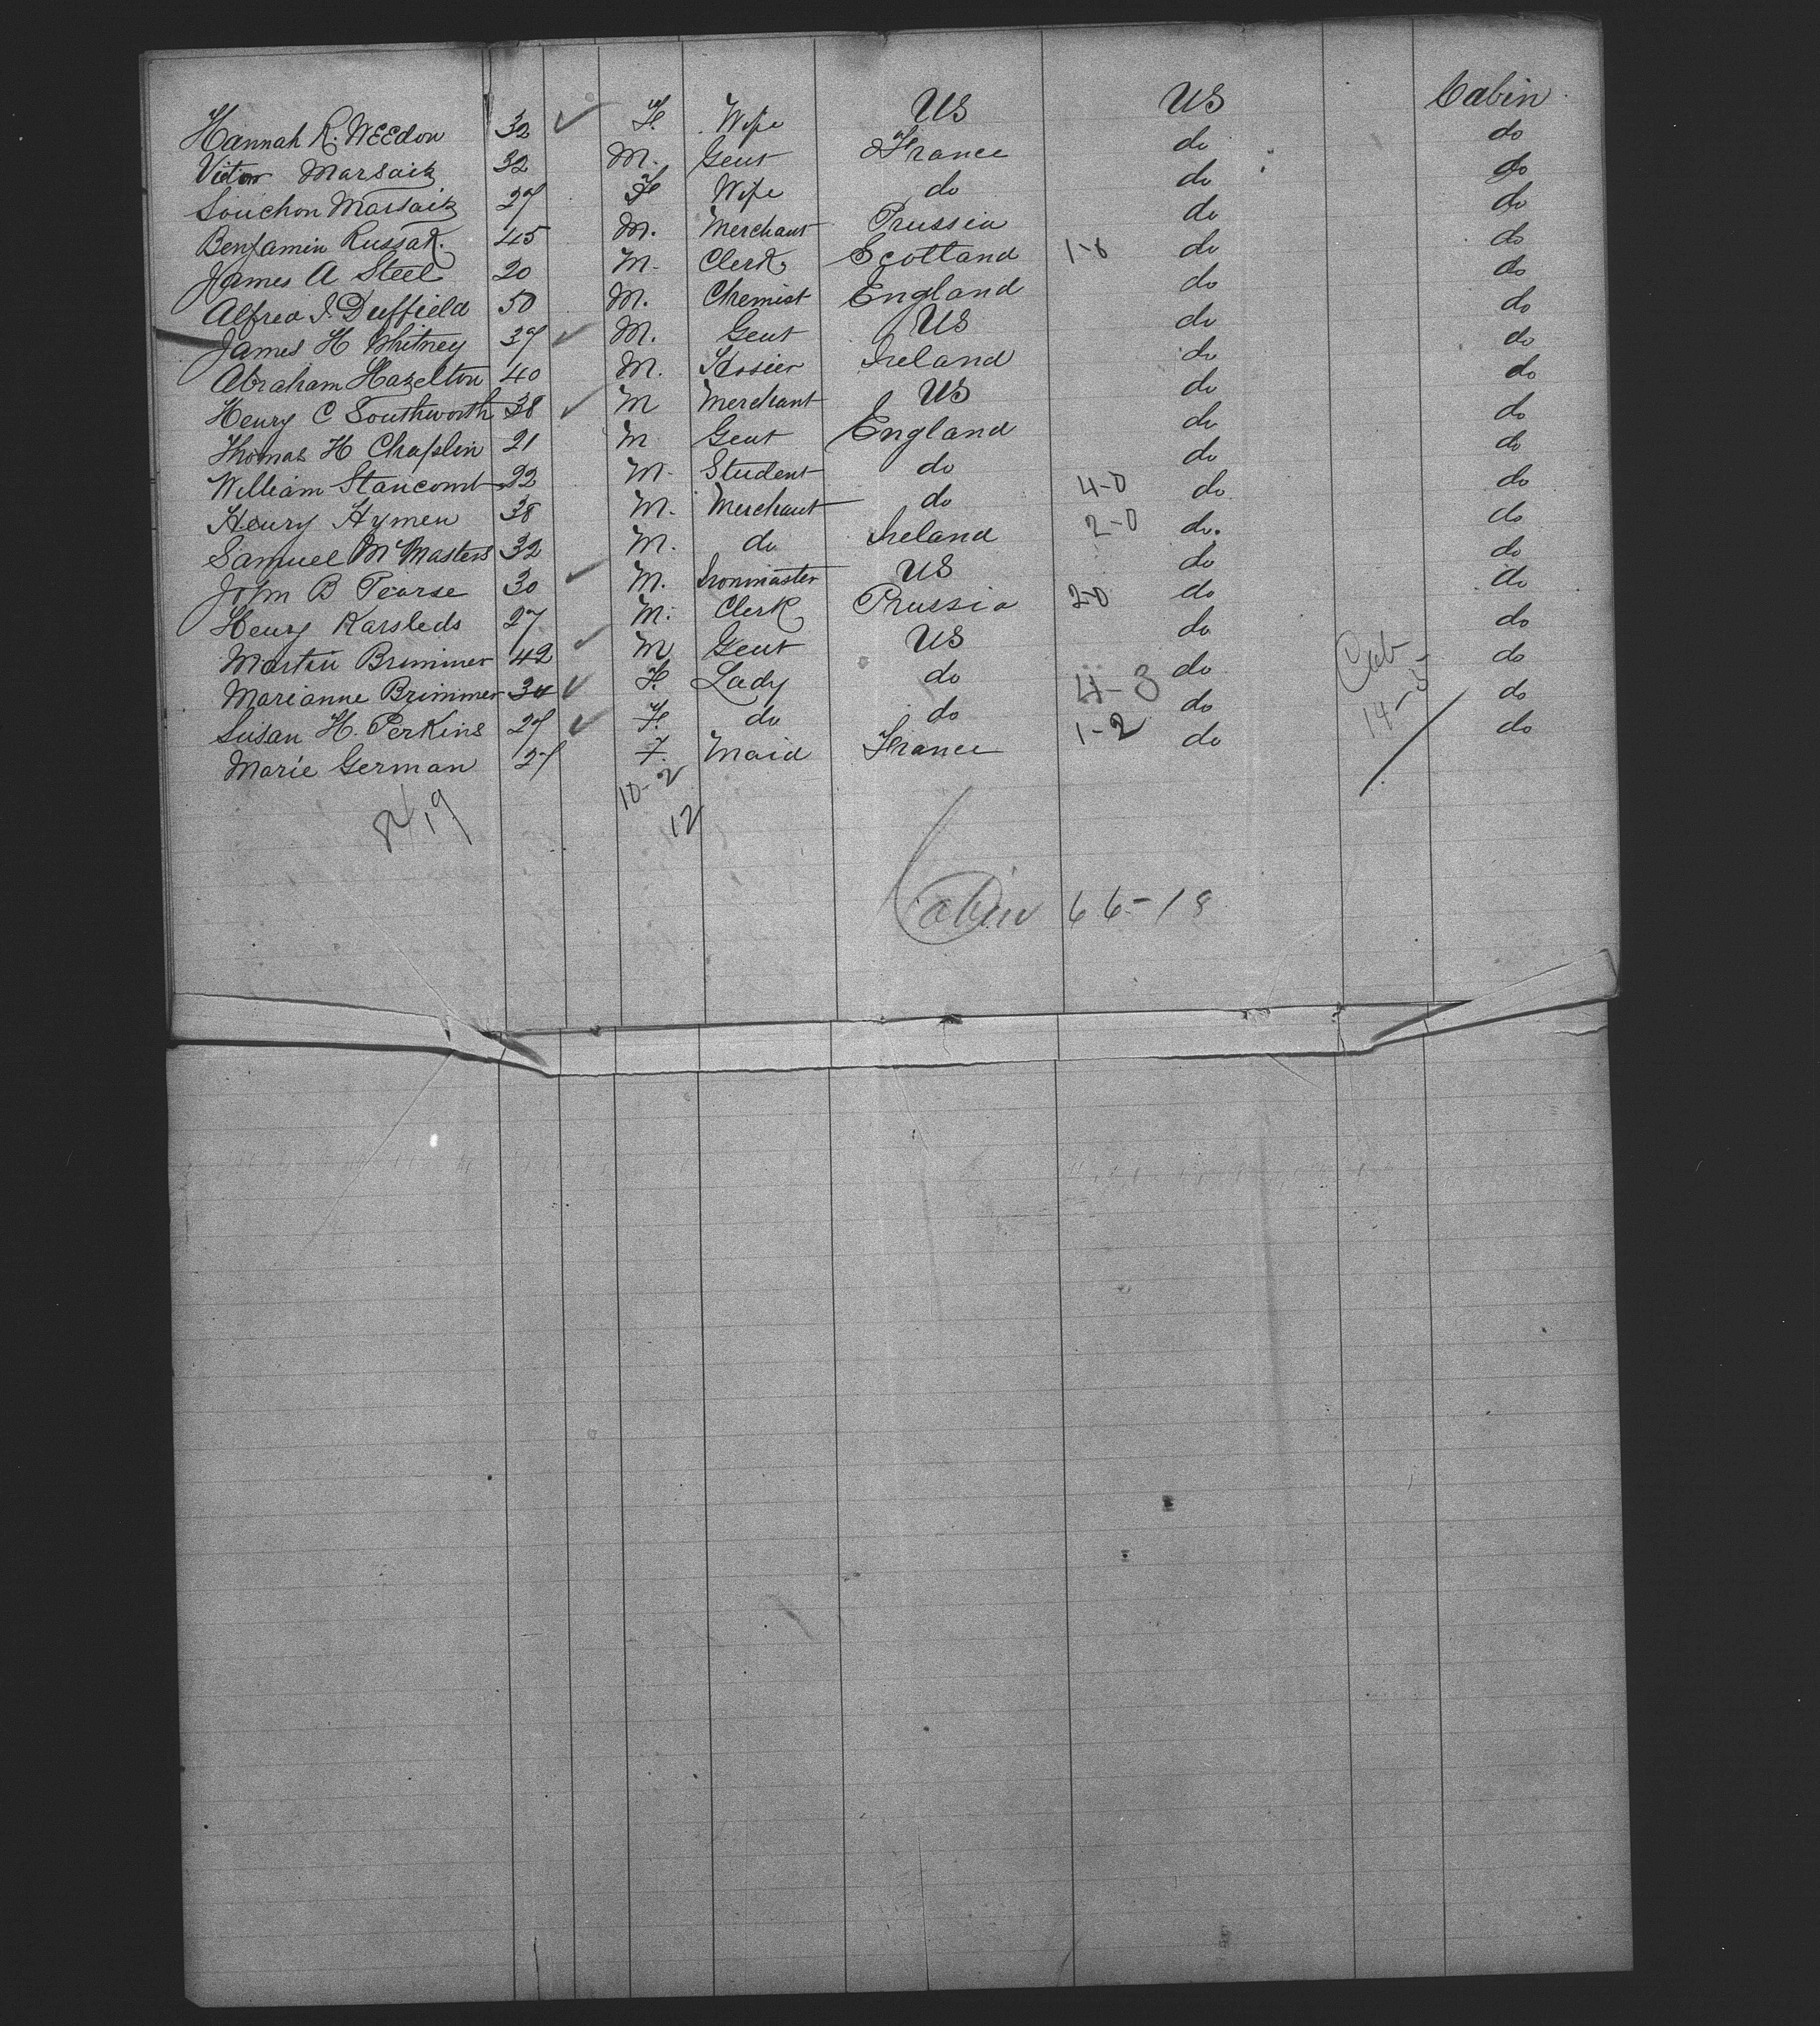 Hannah R. Weedon 32 ✓ F. Wife US US Cabin
Victor Marsaik 32 M. Gent France do do
Souchon Marsaik 27 F Wife do do do
Benjamin Russak. 45 M. Merchant Prussia do do
James A Steel 20 M. Clerk Scotland 1-0 do do
Alfred J. Duffield 50 M. Chemist England do do
James H Whitney 37 ✓ M. Gent US do do
Abraham Hazelton 40 M. Hosier Ireland do do
Henry C Southworth 38 ✓ M Merchant US do do
Thomas H Chaplin 21 M Gent England do do
William Stancomb 22 M. Student do do do
Henry Hymen 38 M. Merchant do 4-0 do do
Samuel McMasters 32 M. do Ireland 2-0 do. do
John B Pearse 30 ✓ M. Ironmaster US do do
Henry Karsleds 27 M. Clerk Prussia 2-0 do do
Martin Brimmer 42 ✓ M Gent US do do
Marianne Brimmer 34 ✓ F. Lady do 4-3 do Cab do
Susan H. Perkins 27 ✓ F. do do do 14-5 do
Marie German 27 F. Maid France 1-2 do do
10-2
19 12
Cabin 66-18